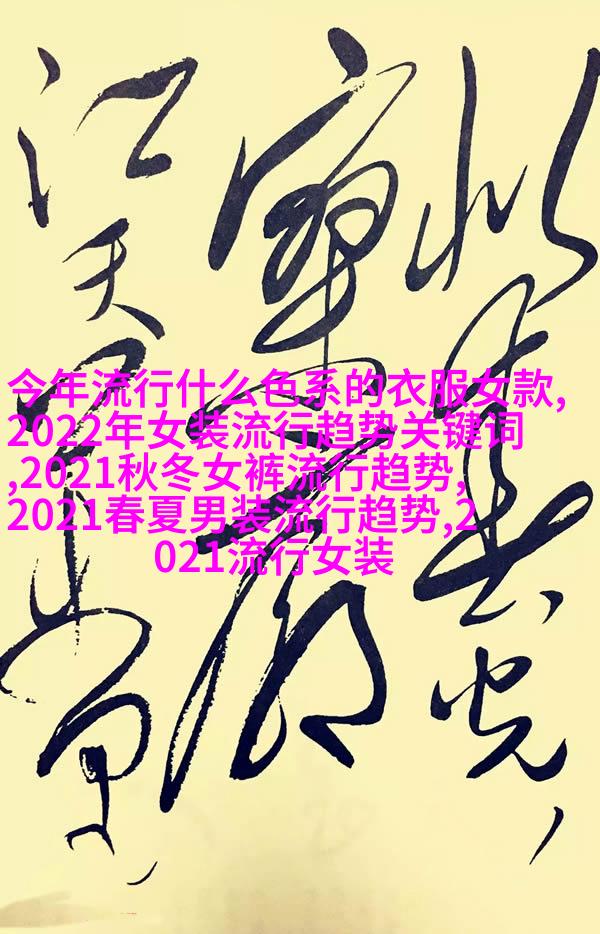 今年流行什么色系的衣服女款,
2022年女装流行趋势关键词
,2021秋冬女裤流行趋势,
2021春夏男装流行趋势,2
021流行女装
似春光,
寥廓
江天万里霜